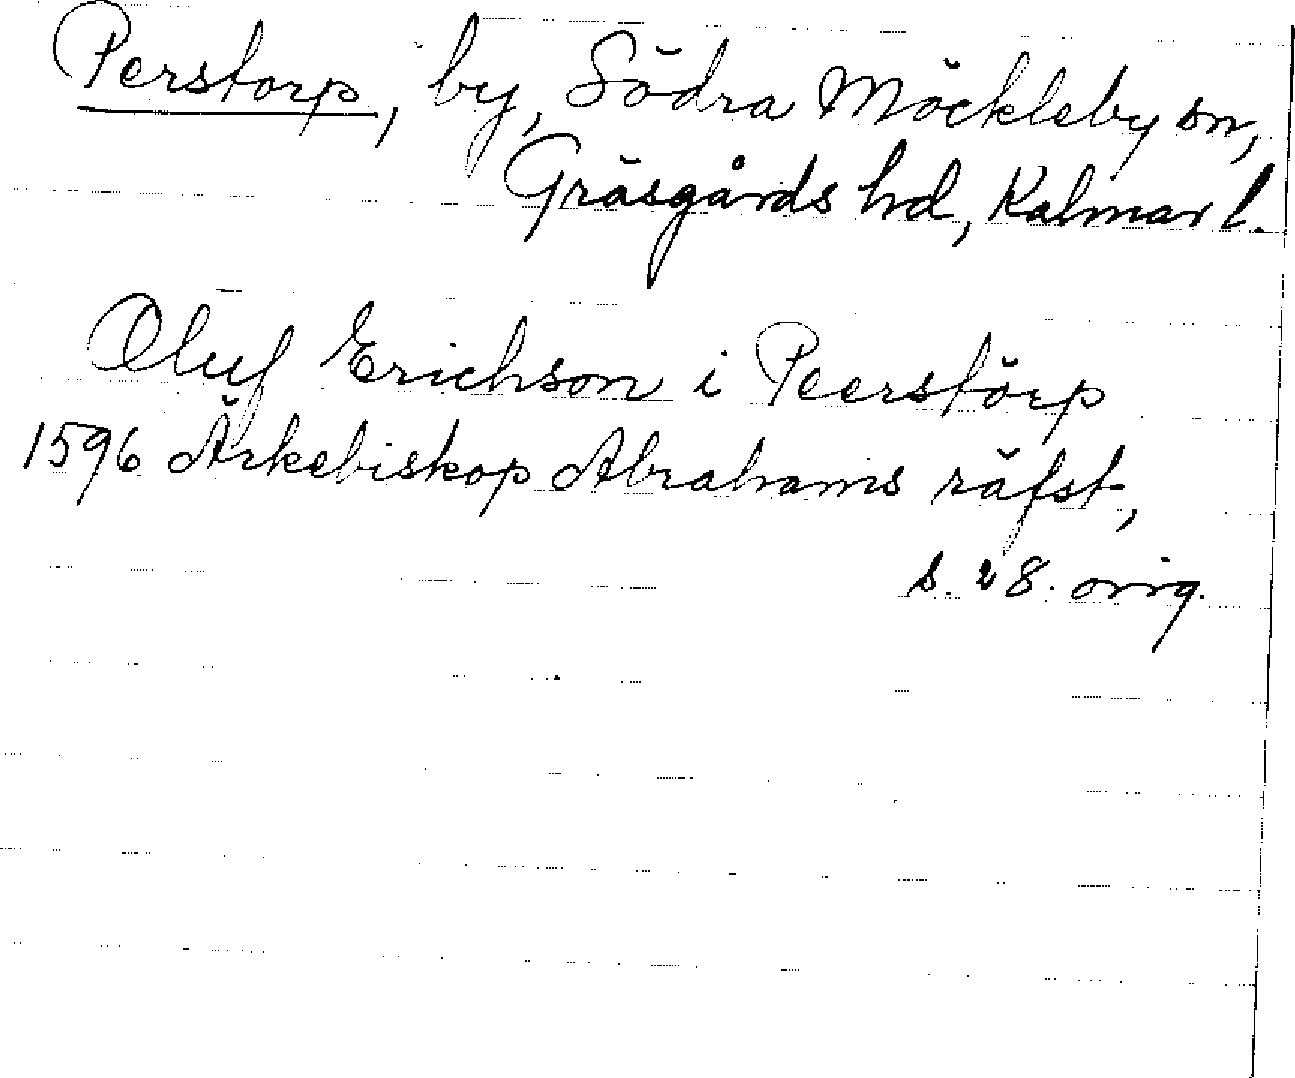 Perstorp, by, Södra Möckleby sn,
Gräsgårds hd, Kalmar l.
Oluf Erichson i Peerstörp
1596 Ärkebiskop Abrahams räfst,
s. 28. orig.